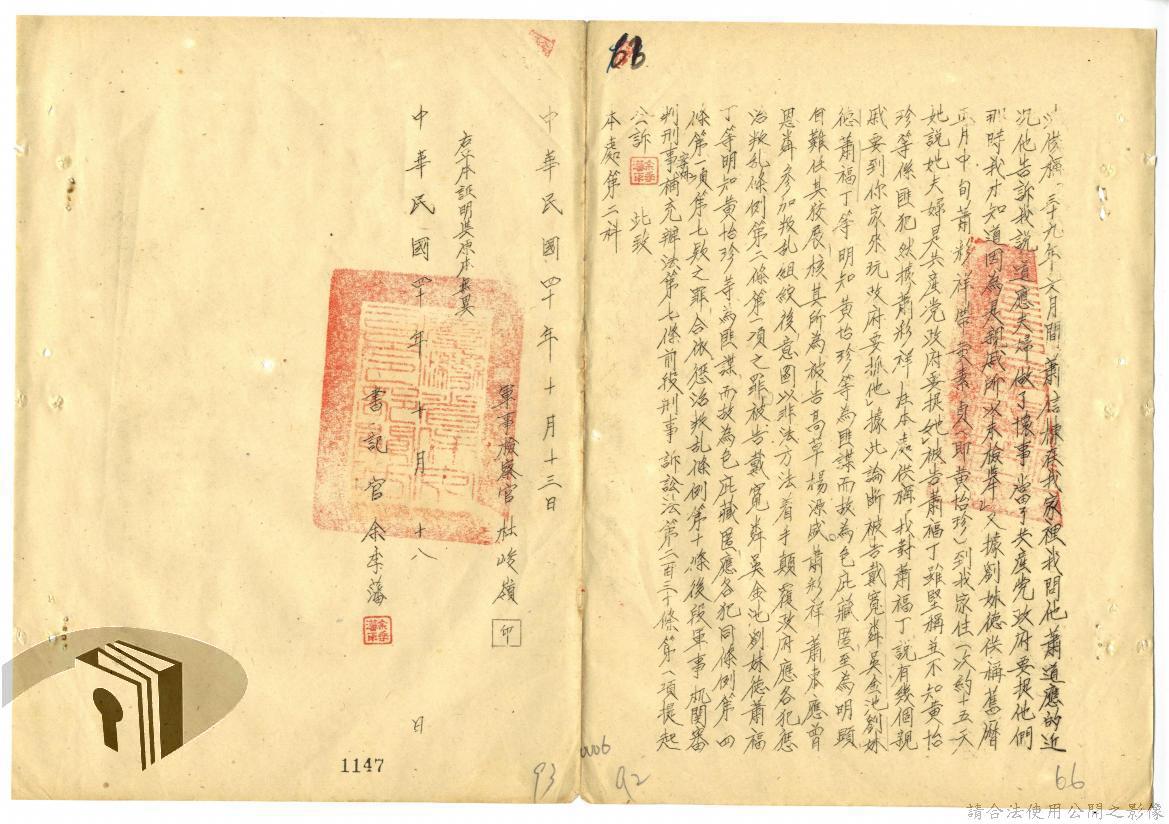 供稱「三十九年六月間蕭信棟在我家裡我問他蕭道應的近
況他告訴我說道應夫婦做了壞事當了共產党政府要捉他們
那時我才知道因為是親戚所以未檢舉」又據劉妹德供稱舊曆
正月中旬蕭彩祥帶黃素貞(即黃怡珍)到我家住一次約十五天
她說她夫婦是共產党政府要捉她」被告蕭福丁雖堅稱並不知黃怡
珍等係匪犯然據蕭彩祥在本處供稱「我對蕭福丁說有幾個親
戚要到你家來玩政府要抓他」據此論斷被告戴寬粦吳金池劉妹
德蕭福丁等明知黃怡珍等為匪諜而故為包庇藏匿至為明顯
自難任其狡展核其所為被告高草楊源盛蕭彩祥蕭東應曾
恩粦參加叛乱組織後意圖以非法方法着手顛覆政府應各犯懲
治叛乱條例第二條第一項之罪被告戴寬粦吳金池劉妹德蕭福
丁等明知黃怡珍等為匪諜而故為包庇藏匿應各犯同條例第四
條第一項第七款之罪合依懲治叛乱條例第十條後段軍事机関審
判刑事案件補充辦法第七條前段刑事訴訟法第二百三十條第一項提起
公訴 此致
本處第二科
軍事檢察官 杜峻嶺 印
中華民國四十年十月十三日
右本証明與原本無異
書記官 余季藩
中華民國四十年十月十八日
66
66
92
93
1147
請合法使用公開之影像